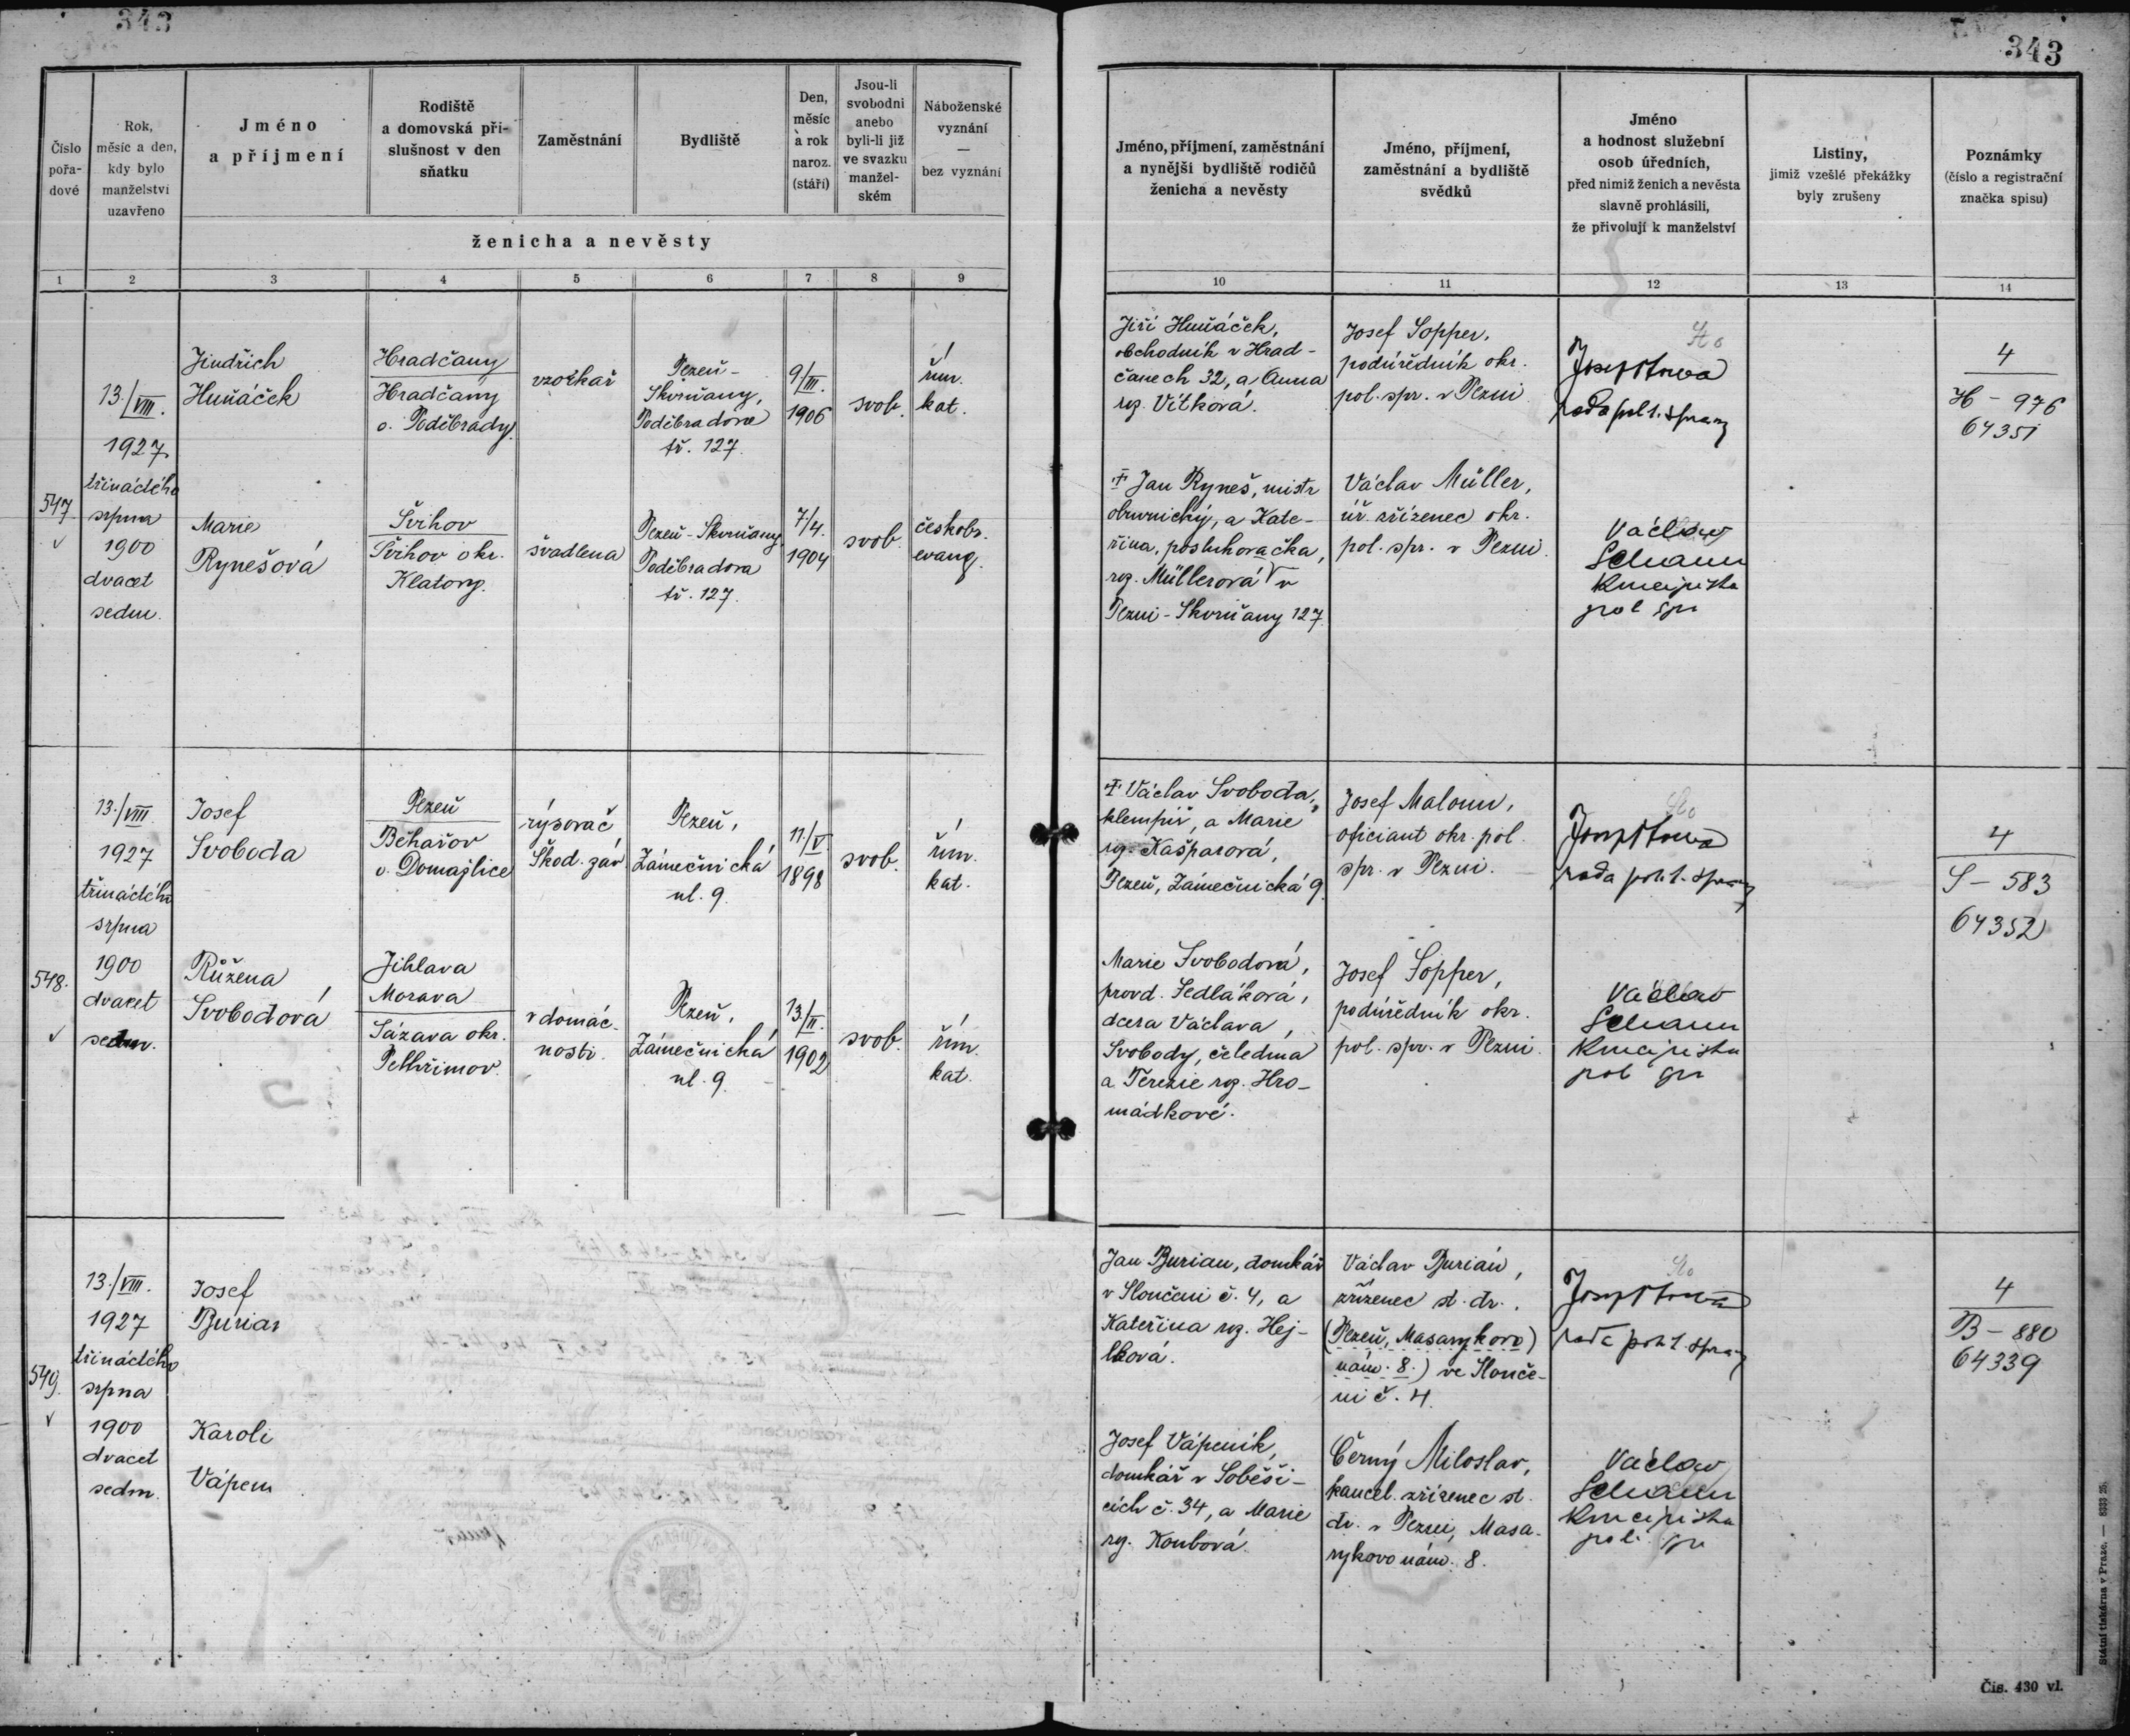 343
Číslo pořa- dové
Rok, měsíc a den, kdy bylo manželství uzavřeno
Jméno a příjmení
Rodiště a domovská pří- slušnost v den sňatku
Zaměstnání
Bydliště
Den, měsíc a rok naroz. (stáří)
Jsou-li svobodni anebo byli-li již ve svazku manžel- ském
Náboženské vyznání — bez vyznání
ženicha a nevěsty
1 2 3 4 5 6 7 8 9
13./VIII.
1927
třináctého
srpna
1900
dvacet
sedm.
547
Jindřich
Huňáček
Hradčany
Hradčany
o. Poděbrady.
vzorkař
Plzeň-
Skvrňany,
Poděbradova
tř. 127.
9/III.
1906
svob.
řím.
kat.
Marie
Rynešová
Švihov
Švihov okr.
Klatovy.
švadlena
Plzeň-Skvrňany
Poděbradova
tř. 127.
7/4.
1904
svob.
českobr.
evang.
13./VIII
1927
třináctého
srpna
1900
dvacet
sedm.
548.
Josef
Svoboda
Plzeň
Běhařov
o. Domažlice
rýsovač
Škod. záv.
Plzeň,
Zámečnická
ul. 9.
11/V.
1898
svob.
řím.
kat.
Růžena
Svobodová
Jihlava
Morava
Sázava okr.
Pelhřimov.
v domác-
nosti.
Plzeň,
Zámečnická
ul. 9.
13/II.
1902
svob.
řím.
kat.
13./VIII.
1927
třináctého
srpna
1900
dvacet
sedm.
549.
Josef
Burian
Karoli
Vápen
343
Jméno, příjmení, zaměstnání a nynější bydliště rodičů ženicha a nevěsty
Jméno, příjmení, zaměstnání a bydliště svědků
Jméno a hodnost služební osob úředních, před nimiž ženich a nevěsta slavně prohlásili, že přivolují k manželství
Listiny, jimiž vzešlé překážky byly zrušeny
Poznámky (číslo a registrační značka spisu)
10 11 12 13 14
Jiří Huňáček,
obchodník v Hrad-
čanech 32, a Anna
roz. Vítková.
Josef Sopper,
podúředník okr.
pol. spr. v Plzni
rada pol. správy
4
H - 976
64351
† Jan Ryneš, mistr
obuvnický, a Kate-
řina, posluhovačka,
roz. Müllerová v
Plzni-Skvrňany 127.
Václav Müller,
úř. zřízenec okr.
pol. spr. v Plzni.
Václav
pol spr
† Václav Svoboda,
klempíř, a Marie
roz. Kašparová,
Plzeň, Zámečnická 9.
Josef Maloun,
oficiant okr. pol.
spr. v Plzni.
rada pol. správy
4
S - 583
64352
Marie Svobodová,
provd. Sedláková,
dcera Václava
Svobody, čeledína
a Terezie roz. Hro-
mádkové.
Josef Sopper,
podúředník okr.
pol. spr. v Plzni.
Václav
pol spr
Jan Burian, domkář
v Sloučeni č. 4, a
Kateřina roz. Hej-
lková.
Václav Burian,
zřízenec st. dr.,
(Plzeň, Masarykovo)
nám. 8.) ve Slouče-
ni č. 4.
rada pol. správy
4
B - 880
64339
Josef Vápeník,
domkář v Soběši-
cích č. 34, a Marie
roz. Koubová.
Černý Miloslav,
kancel. zřízenec st.
dr. v Plzni, Masa-
rykovo nám. 8.
Václav
pol. spr
Státní tiskárna v Praze. — 8333 25.
Čis. 430 vl.